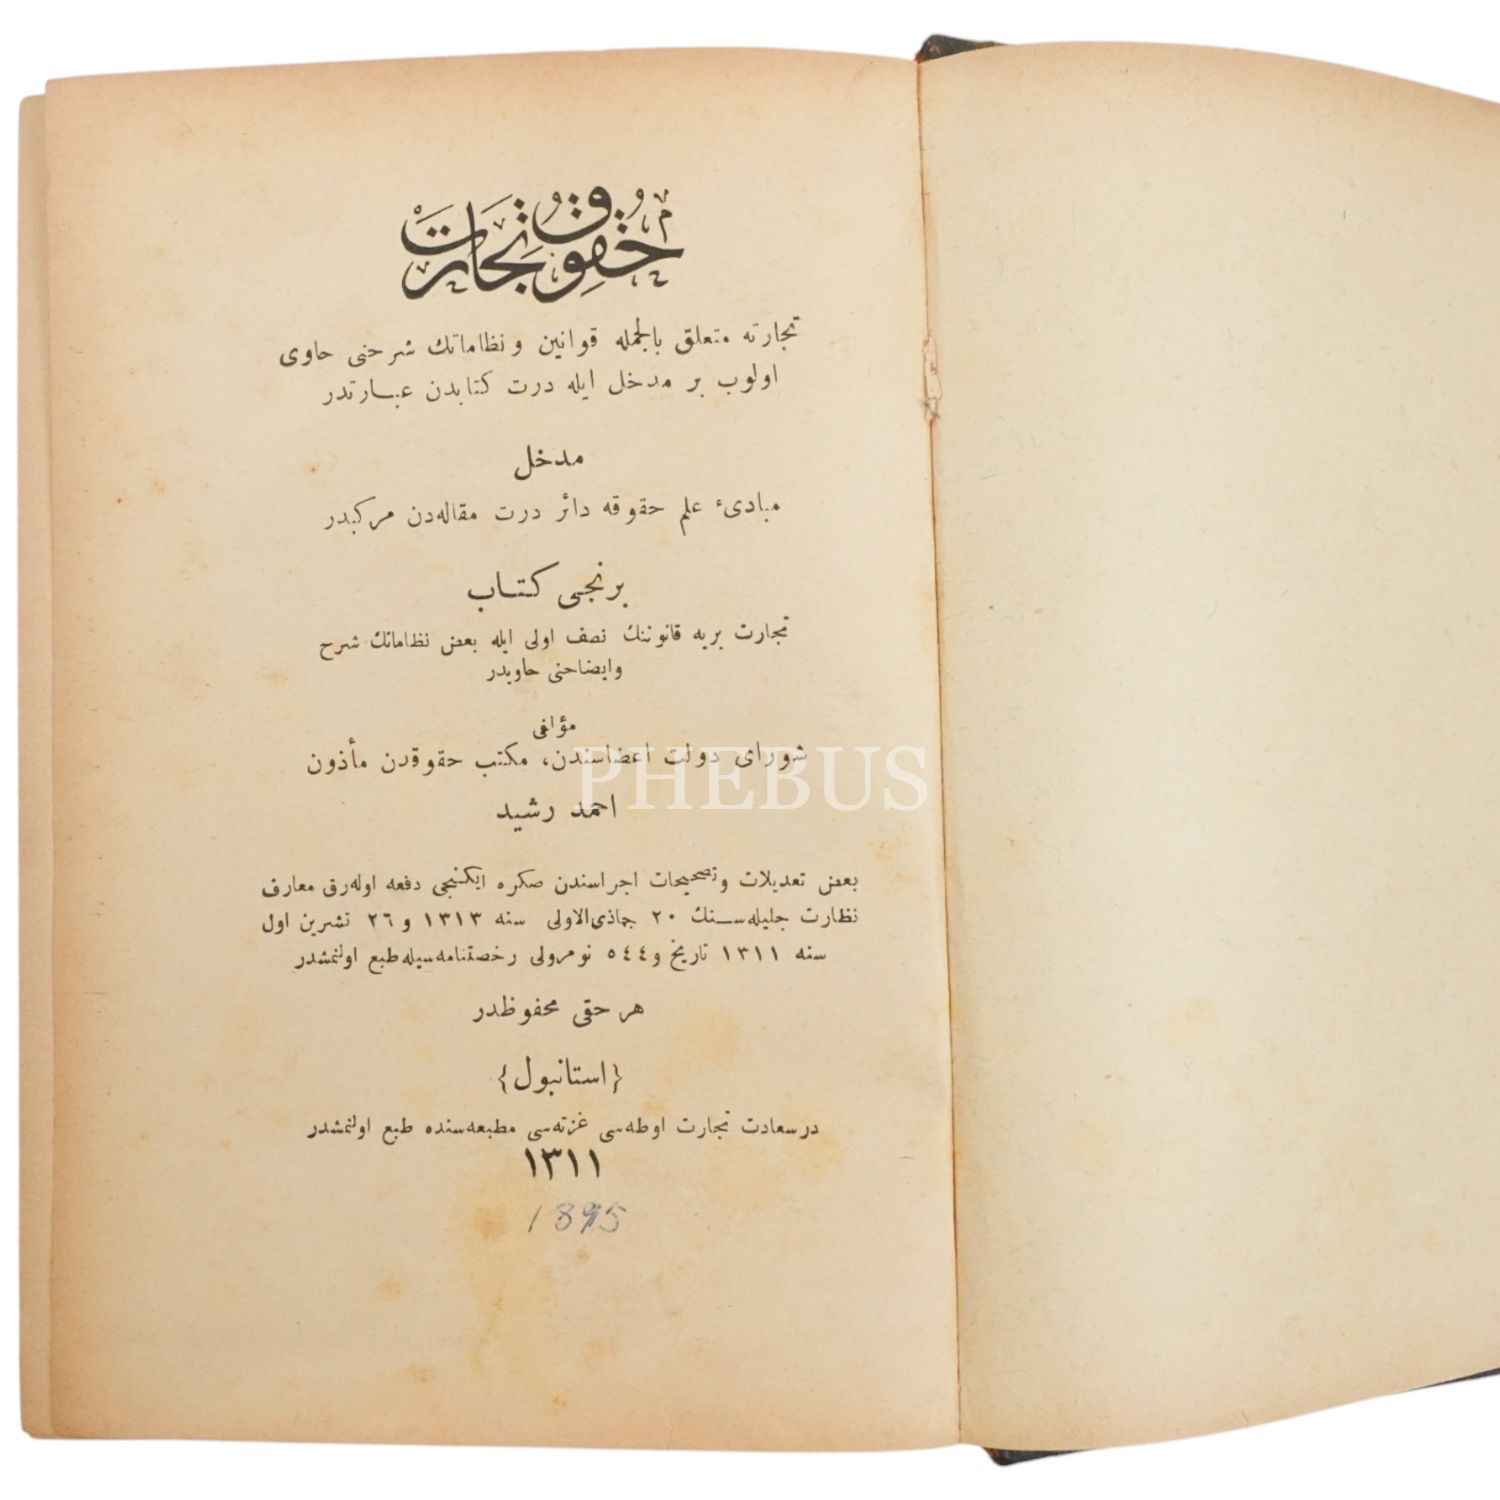 حقوق تجارت
تجارته متعلق بالجمله قوانین و نظاماتك شرحنی حاوی
اولوب بر مدخل ایله درت كتابدن عبارتدر
مدخل
مبادیٔ علم حقوقه دائر درت مقاله‌دن مركبدر
برنجی كتاب
تجارت بریه قانوننك نصف اولی ایله بعض نظاماتك شرح
وایضاحنی حاویدر
مؤلفی
شورای دولت اعضاسندن، مكتب حقوقدن مأذون
احمد رشید
بعض تعدیلات و تصحیحات اجراسندن صكره ایكنجی دفعه اوله‌رق معارف
نظارت جلیله‌سنك ٢٠ جماذی‌الاولی سنه ١٣١٣ و ٢٦ تشرین اول
سنه ١٣١١ تاریخ و ٥٤٤ نومرولی رخصتنامه‌سیله طبع اولنمشدر
هر حقی محفوظدر
{استانبول}
درسعادت تجارت اوطه‌سی غزته‌سی مطبعه‌سنده طبع اولنمشدر
١٣١١
1895
PHEBUS